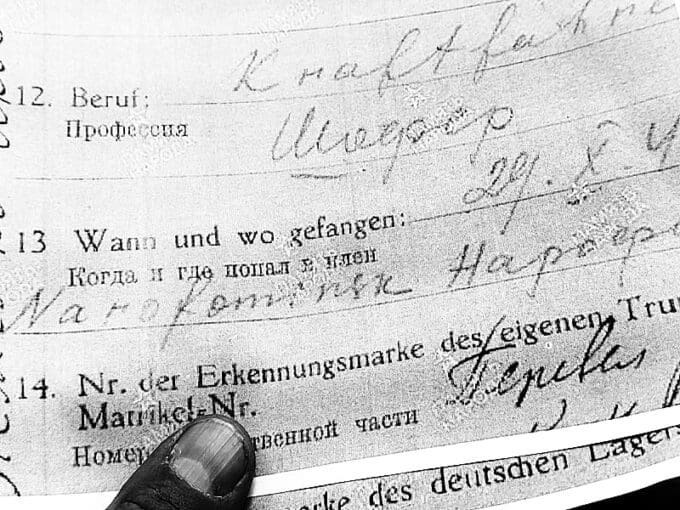 Kraftfahre
12. Beruf:
Профессия
Шофер
29. X. 4
13 Wann und wo gefangen:
Когда и где попал в плен
Narofominsk Нарофо
14. Nr. der Erkennungsmarke des eigenen Tru
Matrikel-Nr.
Перевел
Номе ственной части
des deutschen Lagers